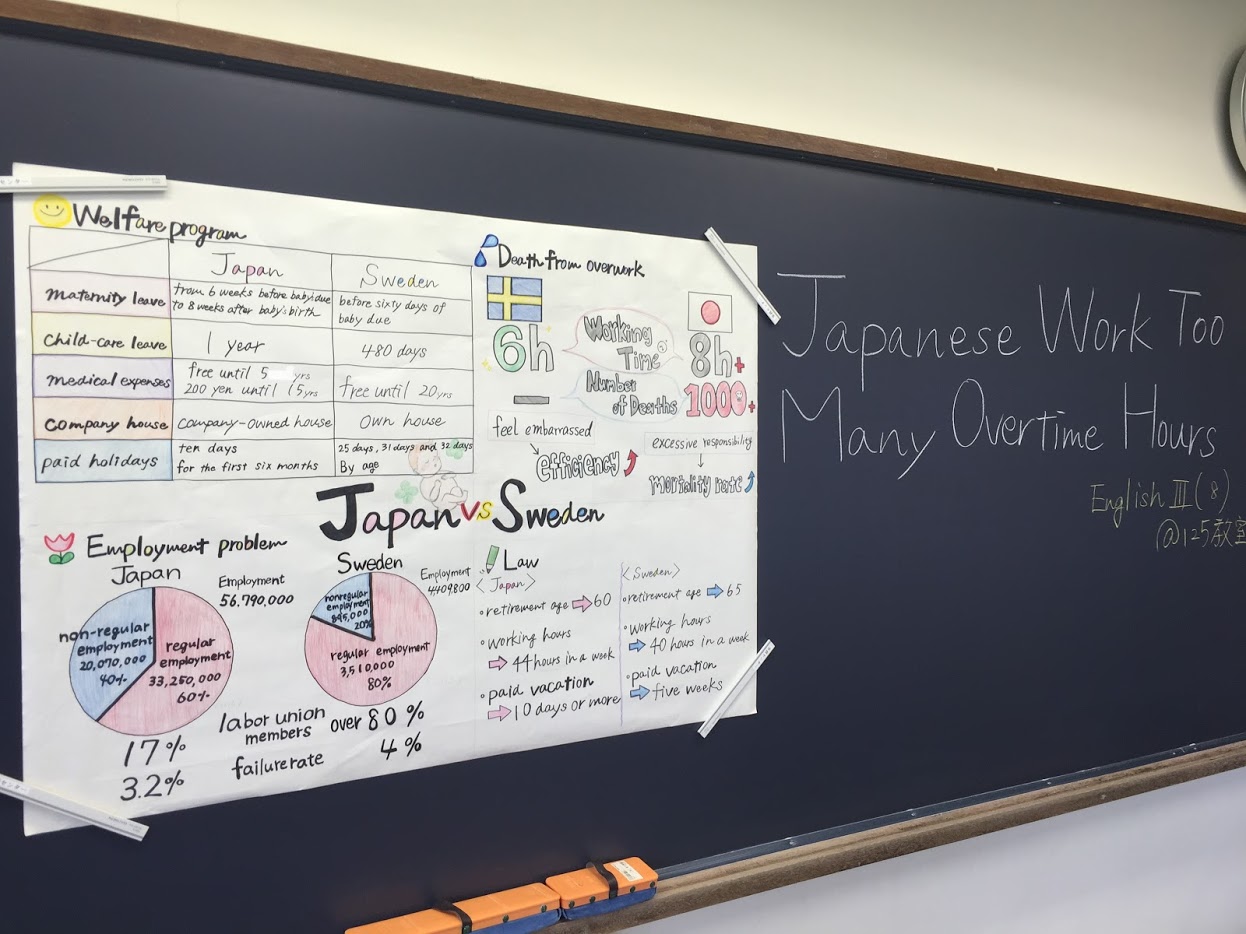 Welfare program
Japan
Sweden
maternity leave
from 6 weeks before baby due
to 8 weeks after baby's birth
before sixty days of
baby due
child-care leave
1 year
480 days
medical expenses
free until 5 yrs
200 yen until 15 yrs
free until 20 yrs
company house
company-owned house
own house
paid holidays
ten days
for the first six months
25 days, 31 days and 32 days
By age
Death from overwork
6h
Working
Time
8h+
Number
of Deaths
1000+
feel embarrassed
efficiency
excessive responsibility
mortality rate
Japan vs Sweden
Employment problem
Japan
Employment
56.790,000
non-regular
employment
20,070,000
40%
regular
employment
33,250,000
60%
Sweden
Employment
4,409,800
nonregular
employment
895,000
20%
regular employment
3,510,000
80%
17%
labor union
members
over 80%
3.2%
failure rate
4%
Law
<Japan>
・retirement age ⇨ 60
・working hours
⇨ 44 hours in a week
・paid vacation
⇨ 10 days or more
<Sweden>
・retirement age ⇨ 65
・working hours
⇨ 40 hours in a week
・paid vacation
⇨ five weeks
Japanese Work Too
Many Overtime Hours
English III (8)
@125教室